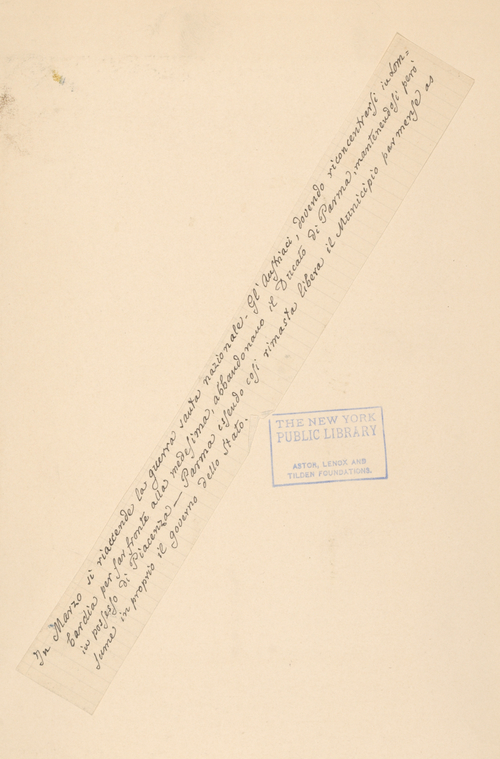 In Marzo si riaccende la guerra santa nazionale. Gl'Austriaci, dovendo riconcentrarsi in Lom=
bardia per far fronte alla medesima, abbandonano il Ducato di Parma, mantenendosi però
in possesso di Piacenza — Parma essendo così rimasta libera il Municipio parmense as
sume in proprio il governo dello Stato.
THE NEW YORK
PUBLIC LIBRARY
ASTOR, LENOX AND
TILDEN FOUNDATIONS.